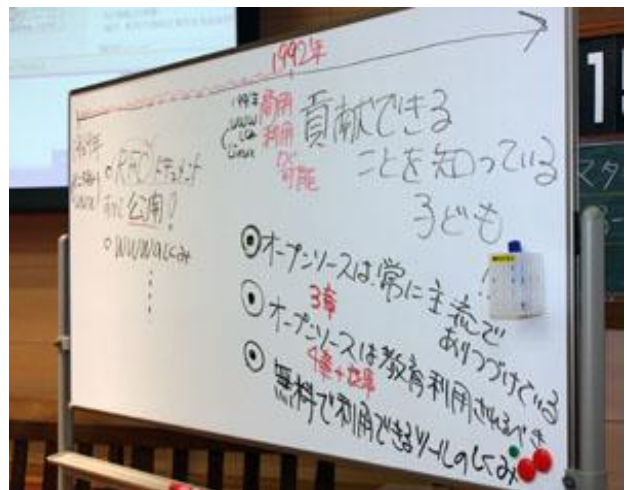 1992年
1991年
WWW
Linux
商用
利用
可能
貢献できる
ことを知っている
子ども
RFCドキュメント
公開!
WWWのしくみ
オープンソースは、常に主流で
ありつづけている
3章
オープンソースは教育利用されるべき
4章+
無料で利用できるツールのしくみ
15
マタ